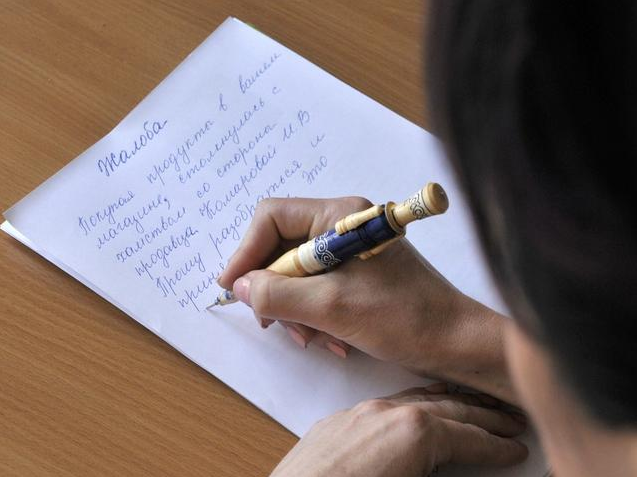 Жалоба.
Покупая продукты в вашем
магазине, столкнулась с
хамством со стороны
продавца Комаровой М.В
Прошу разобраться и
прин это